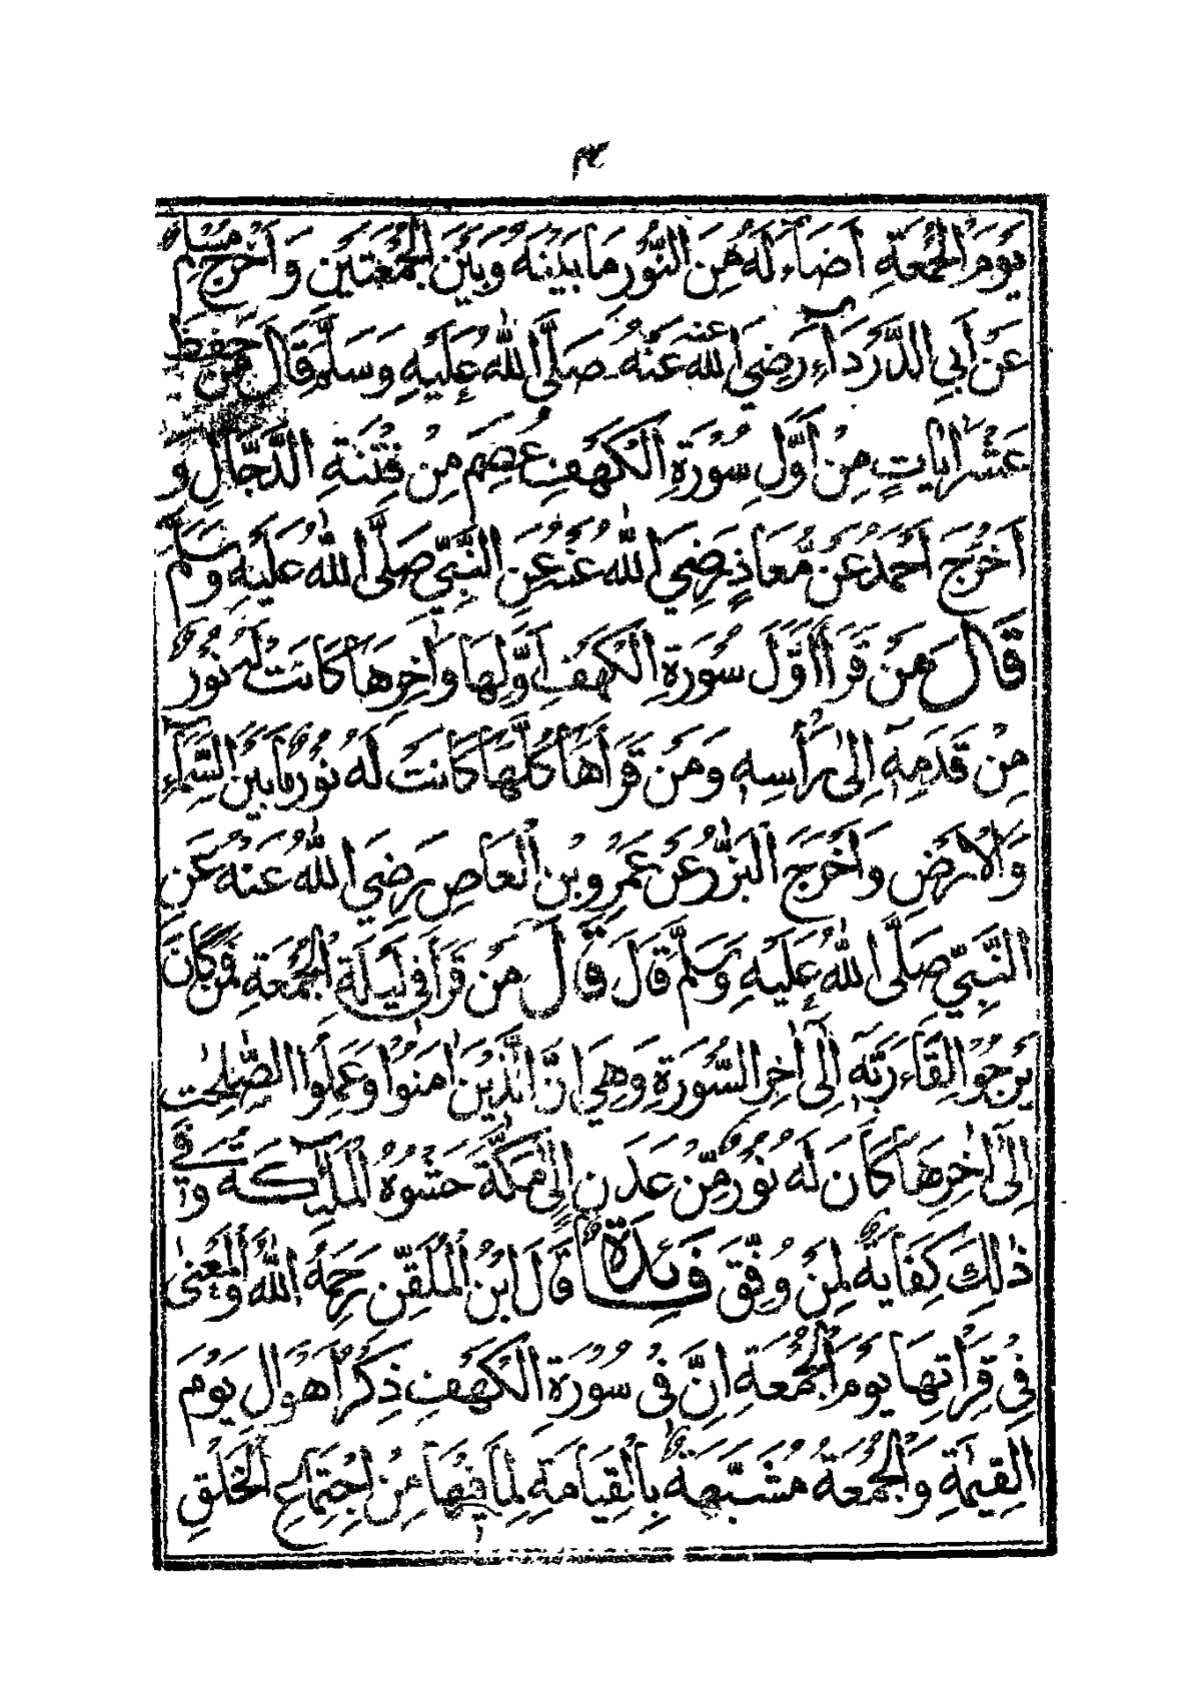 ٣
يَوْمَ الْجُمُعَةِ أَضَاءَ لَهُ مِنَ النُّورِ مَا بَيْنَهُ وَبَيْنَ الْجُمُعَتَيْنِ وَأَخْرَجَ مُسْلِمٌ
عَنْ أَبِي الدَّرْدَاءِ رَضِيَ اللهُ عَنْهُ عنه صَلَّى اللهُ عَلَيْهِ وَسَلَّمَ قَالَ مَنْ حَفِظَ
عَشْرَ اٰيَاتٍ مِنْ اَوَّلِ سُوْرَةِ الْكَهْفِ عُصِمَ مِنْ فِتْنَةِ الدَّجَّالِ وَ
اَخْرَجَ اَحْمَدُ عَنْ مُّعَاذٍ رَضِيَ اللهُ عَنْهُ عَنِ النَّبِيِّ صَلَّى اللهُ عَلَيْهِ وَسَلَّمَ
قَالَ مَنْ قَرَأَ اَوَّلَ سُوْرَةِ الْكَهْفِ اَوَّلِهَا وَاٰخِرِهَا كَانَتْ لَهُ نُوْرٌ
مِنْ قَدَمِهٖ اِلٰى رَأْسِهٖ وَمَنْ قَرَأَهَا كُلَّهَا كَانَتْ لَهُ نُوْرٌ مَا بَيْنَ السَّمَاءِ
وَالْاَرْضِ وَاَخْرَجَ الْبَزَّرُ عَنْ عَمْرِو بْنِ الْعَاصِ رَضِيَ اللهُ عَنْهُ عَنِ
النَّبِيِّ صَلَّى اللهُ عَلَيْهِ وَسَلَّمَ قَالَ قَالَ مَنْ قَرَأَ فِي لَيْلَةِ الْجُمُعَةِ فَمَنْ كَانَ
يَرْجُوْا لِقَاءَ رَبِّهٖ اِلٰى اٰخِرِ السُّوْرَةِ وَهِيَ اِنَّ الَّذِيْنَ اٰمَنُوْا وَعَمِلُوا الصّٰلِحٰتِ
اِلٰى اٰخِرِهَا كَانَ لَهُ نُوْرٌ مِّنْ عَدَنٍ اِلٰى مَكَّةَ حَشْوُهُ الْمَلٰئِكَةُ وَفِي
ذٰلِكَ كِفَايَةٌ لِمَنْ وُفِّقَ فَائِدَةٌ قَالَ ابْنُ الْمُلَقِّنِ رَحِمَهُ اللهُ وَالْمَعْنٰى
فِي قِرَأَتِهَا يَوْمَ الْجُمُعَةِ اِنَّ فِي سُوْرَةِ الْكَهْفِ ذِكْرَ اَهْوَالِ يَوْمِ
الْقِيٰمَةِ وَالْجُمُعَةُ مُشَبَّهَةٌ بِالْقِيَامَةِ لِمَا فِيْهَا مِنْ اِجْتِمَاعِ الْخَلْقِ